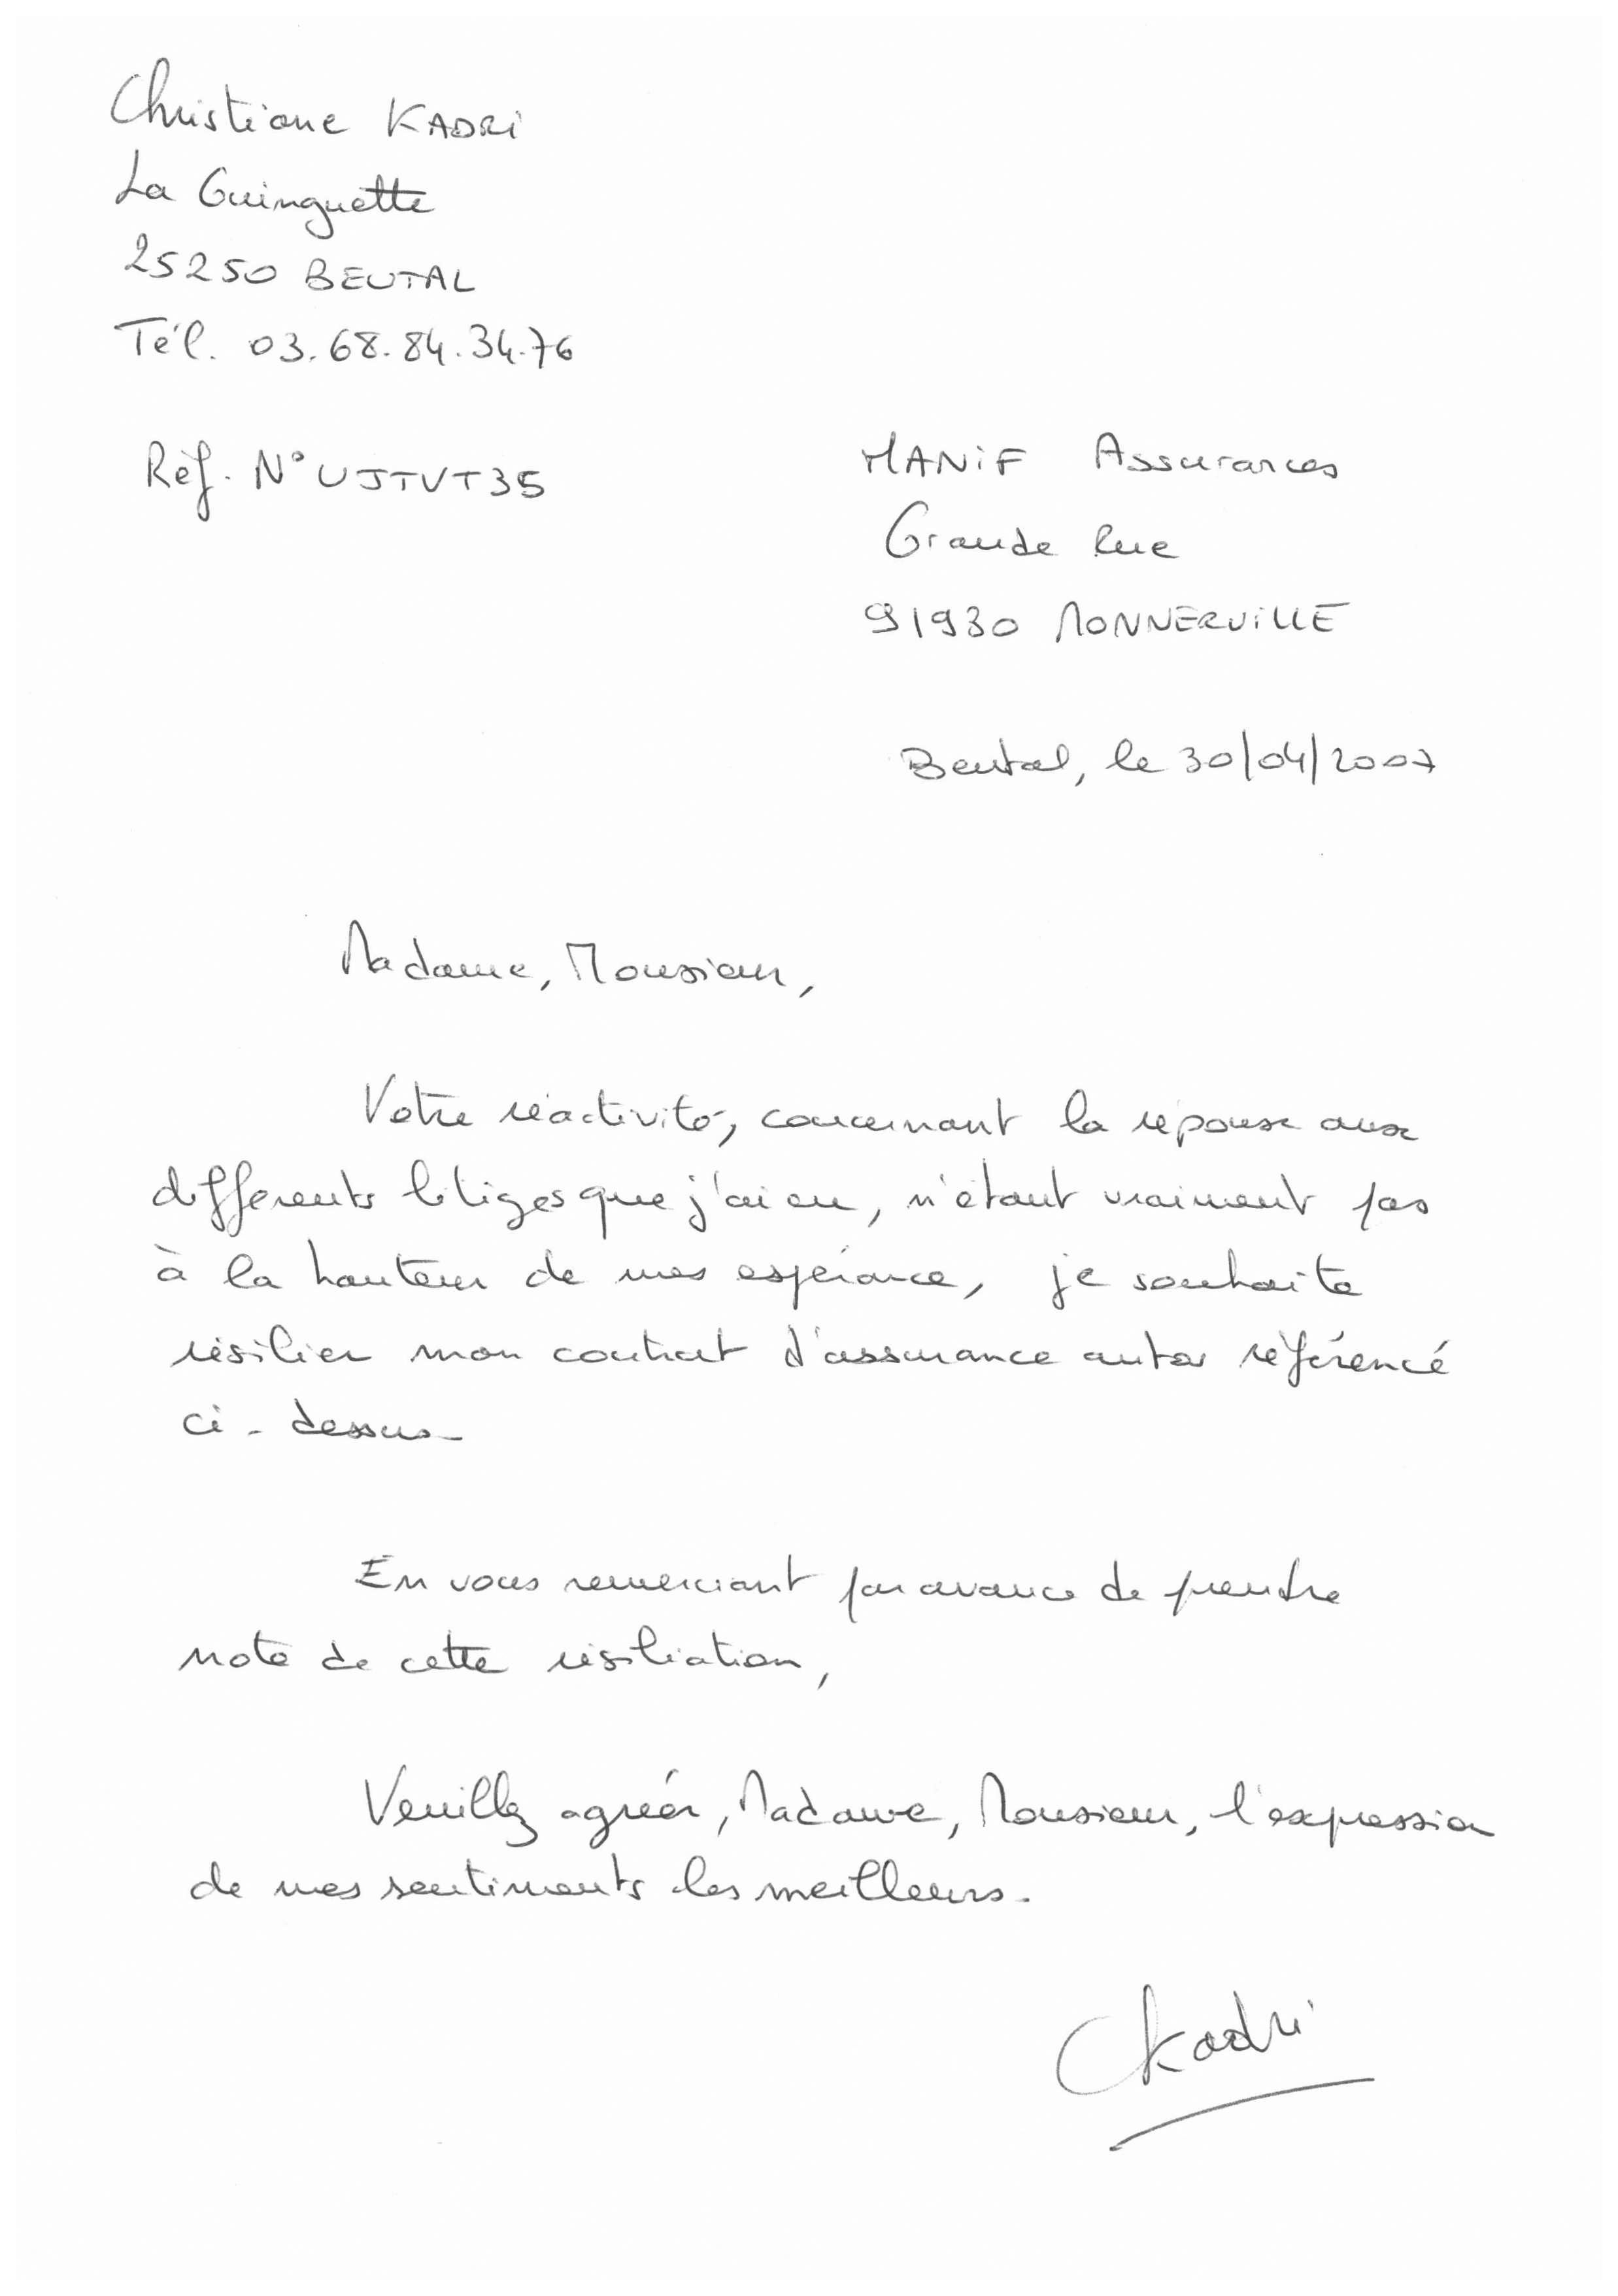 Christiane KADRI
La Guinguette
25250 BEUTAL
Tél. 03.68.84.34.76
Réf. N° UJTVT35
MANIF Assurances
Grande Rue
91930 MONNERVILLE
Beutal, le 30/04/2007
Madame, Monsieur,
Votre réactivité, concernant la réponse aux
différents litiges que j'ai eu, n'étant vraiment pas
à la hauteur de mes espérance, je souhaite
résilier mon contrat d'assurance auto référencé
ci-dessus
En vous remerciant par avance de prendre
note de cette résiliation,
Veuillez agréer, Madame, Monsieur, l'expression
de mes sentiments les meilleurs.
CKadri